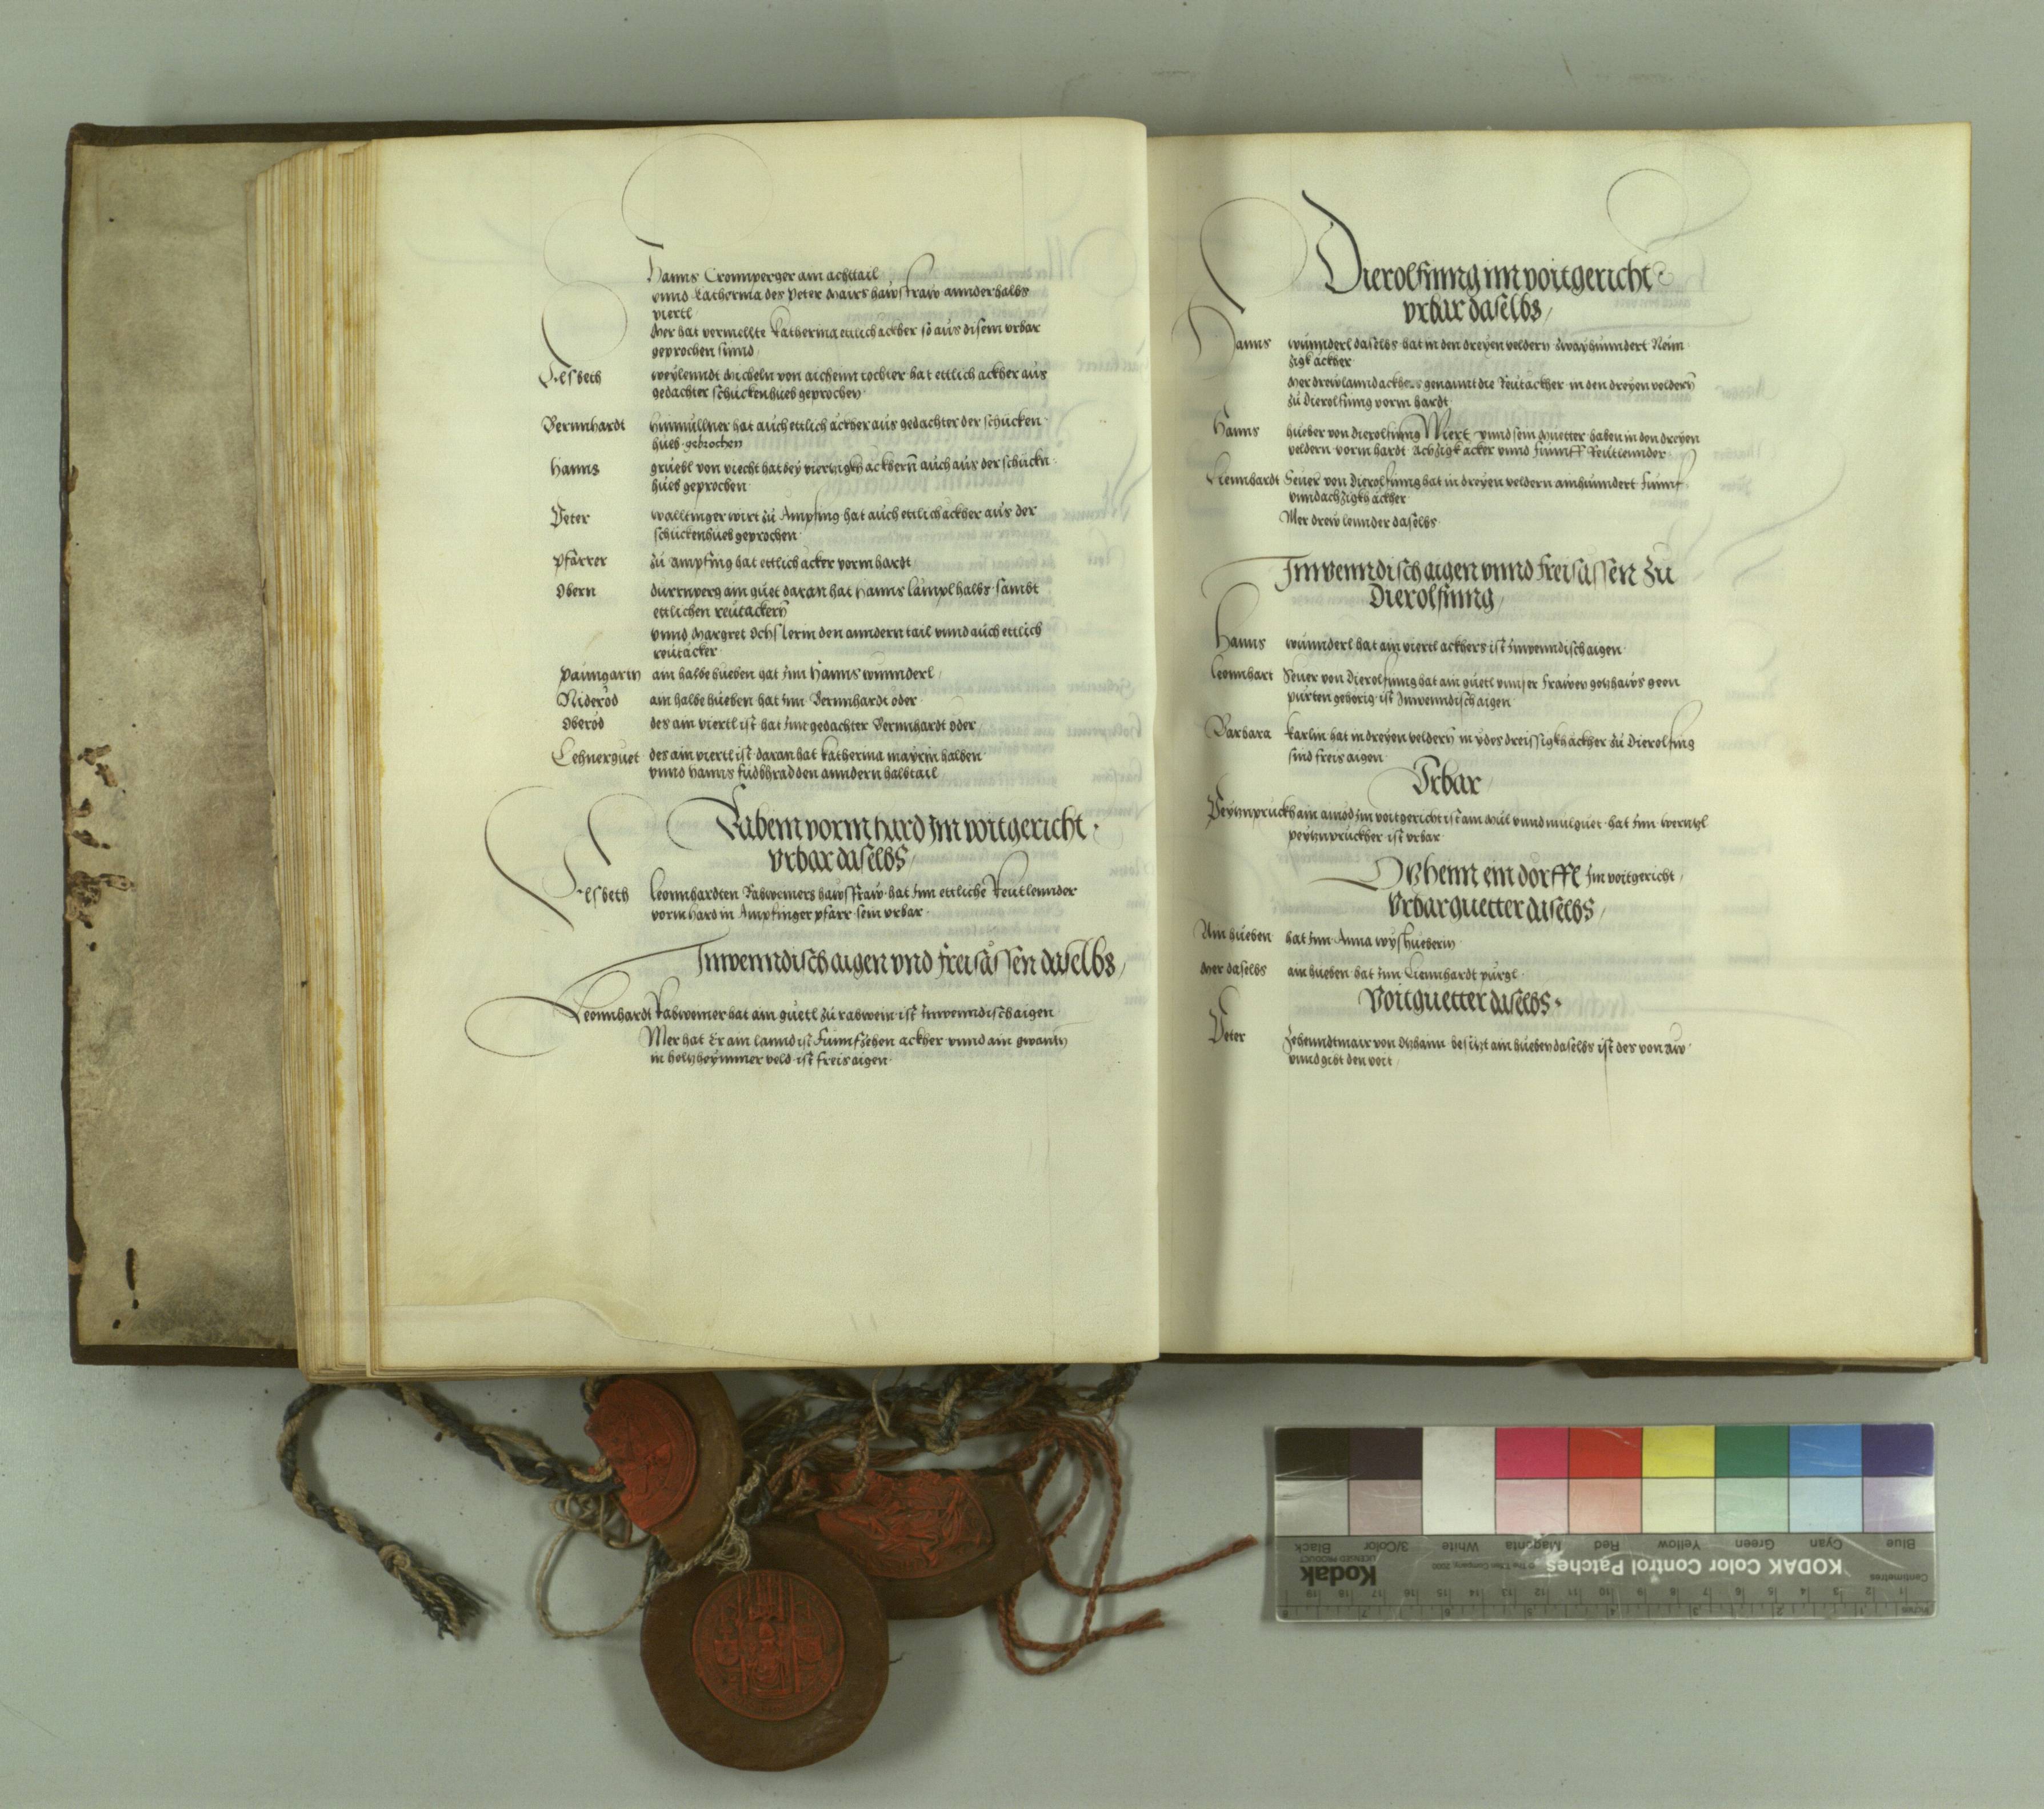 Hanns Cronnperger ain achttail
vnnd Katherina des Peter Mairs hawsfraw annderhalbs
viertl
Mer hat vermellte Katherina ettlich ackher so aus disem vrbar
geprochen sinnd
Elsbeth weylenndt Micheln von aichenn tochter hat ettlich ackher aus
gedachter schuckenhueb geprochen
Bernnhardt hinmüllner hat auch ettlich äckher aus gedachter der schucken
hueb gebrochen
Hanns gruebl von viecht hat bey viertzigkh ackhern auch aus der schuckn
hueb geprochen
Peter walltinger wirt zu Ampfing hat auch ettlich äckher aus der
schuckenhueb geprochen
Pfarrer zu ampfing hat ettlich äcker vorm hardt
Obern dürrnperg ain guet daran hat Hanns lampl halbs sambt
ettlichen reutackern
vnnd Margret Ochslerin den anndern tail vnnd auch ettlich
reutäcker
Paumgartn ain halbe hueben hat Inn Hanns wunnderl
Niderod ain halbe hueben hat Inn Bernnhardt oder
Oberod des ain viertl ist hat Inn gedachter Bernnhardt oder
Lehnerguet des ain viertl ist daran hat Katherina mayrin halben
vnnd Hanns den anndern halbtail
Rabein vorm hard Im voitgericht
vrbar daselbs
Elsbeth Leonnhardten Rabweiners hawsfraw hat Inn ettliche Reutlennder
vorm hard in Ampfinger pfarr sein vrbar
Inwenndisch aigen vnd freisässen daselbs
Leonnhardt Rabweiner hat ain guetl zu rabwein ist Inwenndisch aigen
Mer hat Er ain lannd ist Funnfzehen ackher vnnd ain gwantn
in holtzheymmer veld ist freis aigen
Dierolfinng im voitgericht
vrbar daselbs
Hanns wunnderl daselbs hat in den dreyen veldern zwayhunndert Neün
zigk äckher
Mer drew lannd ackhers genannt die Reutäckher in den dreyen veldern
zu Dierolfinng vorm hardt
Hanns hueber von Dierolfinng Wiert vnnd sein Muetter haben in den dreyen
veldern vorm hardt Achzigk äcker vnnd Fünnff Reutlennder
Liennhardt Seuer von Dierolfinng hat in dreyen veldern ainhunndert Funnf
vnndachzigkh äckher
Mer drew lennder daselbs
Inwenndisch aigen vnnd freisässen zu
Dierolfinng
Hanns wunnderl hat ain viertl ackhers ist Inwenndisch aigen
Leonnhart Seuer von Dierolfinng hat ain guetl vnnser frawen gotzhaws geen
pürten gehörig ist Inwenndisch aigen
Barbara Karlin hat in dreyen veldern in ydes dreissigkh äckher zu Dierolfing
sind freis aigen
Vrbar
Peytznpruckh ain ainöd Im voitgericht ist ain Mul vnnd mulguet hat Inn
peytznpruckher ist vrbar
Otzhenn ein dorffe Im voitgericht
Vrbarguetter daselbs
Ain hueben hat Inn Anna wyshueberin
Mer daselbs ain hueben hat Inn Liennhardt pürgl
Voitguetter daselbs
Peter Zehenndtmair von Otzhann besitzt ain hueben daselbs ist des von aw
vnnd gibt den voit
Blue Cyan Green Yellow Red Magenta White 3/Color Black
KODAK Color Control Patches
Kodak
LICENSED PRODUCT
Centimetres
Inches